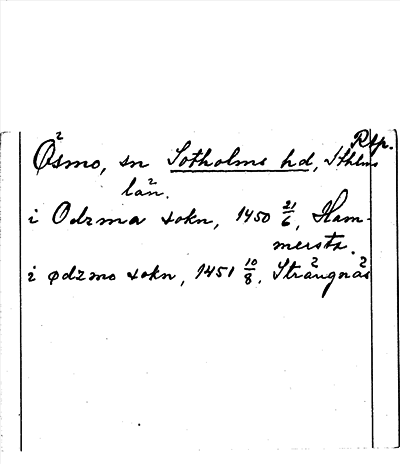 Rap.
Ösmo, sn Sotholms hd, Sthlms
län.
i Odzma sokn, 1450 21/6, Ham-
mersta.
i ødzmo sokn, 1451 10/8, Strängnäs